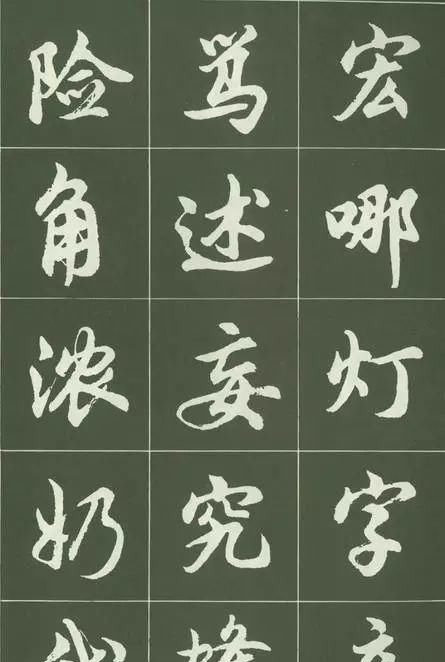 宏哪灯字
骂述妄究
险角浓奶